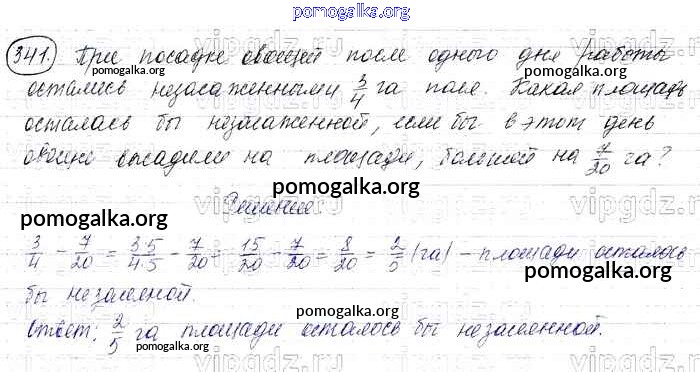 pomogalka.org
341. При посадке овощей после одного дня работы
pomogalka.org pomogalka.org
остались незасаженными 3/4 га поля. Какая площадь
pomogalka.org
осталась бы незасаженной, если бы в этот день
овощи высадили на площади, большей на 7/20 га?
pomogalka.org
Решение:
pomogalka.org pomogalka.org
3/4 - 7/20 = 3·5/4·5 - 7/20 = 15/20 - 7/20 = 8/20 = 2/5 (га) - площади осталось
pomogalka.org
бы незасеянной.
pomogalka.org
Ответ: 2/5 га площади осталось бы незасеянной.
pomogalka.org pomogalka.org
vipgdz.ru